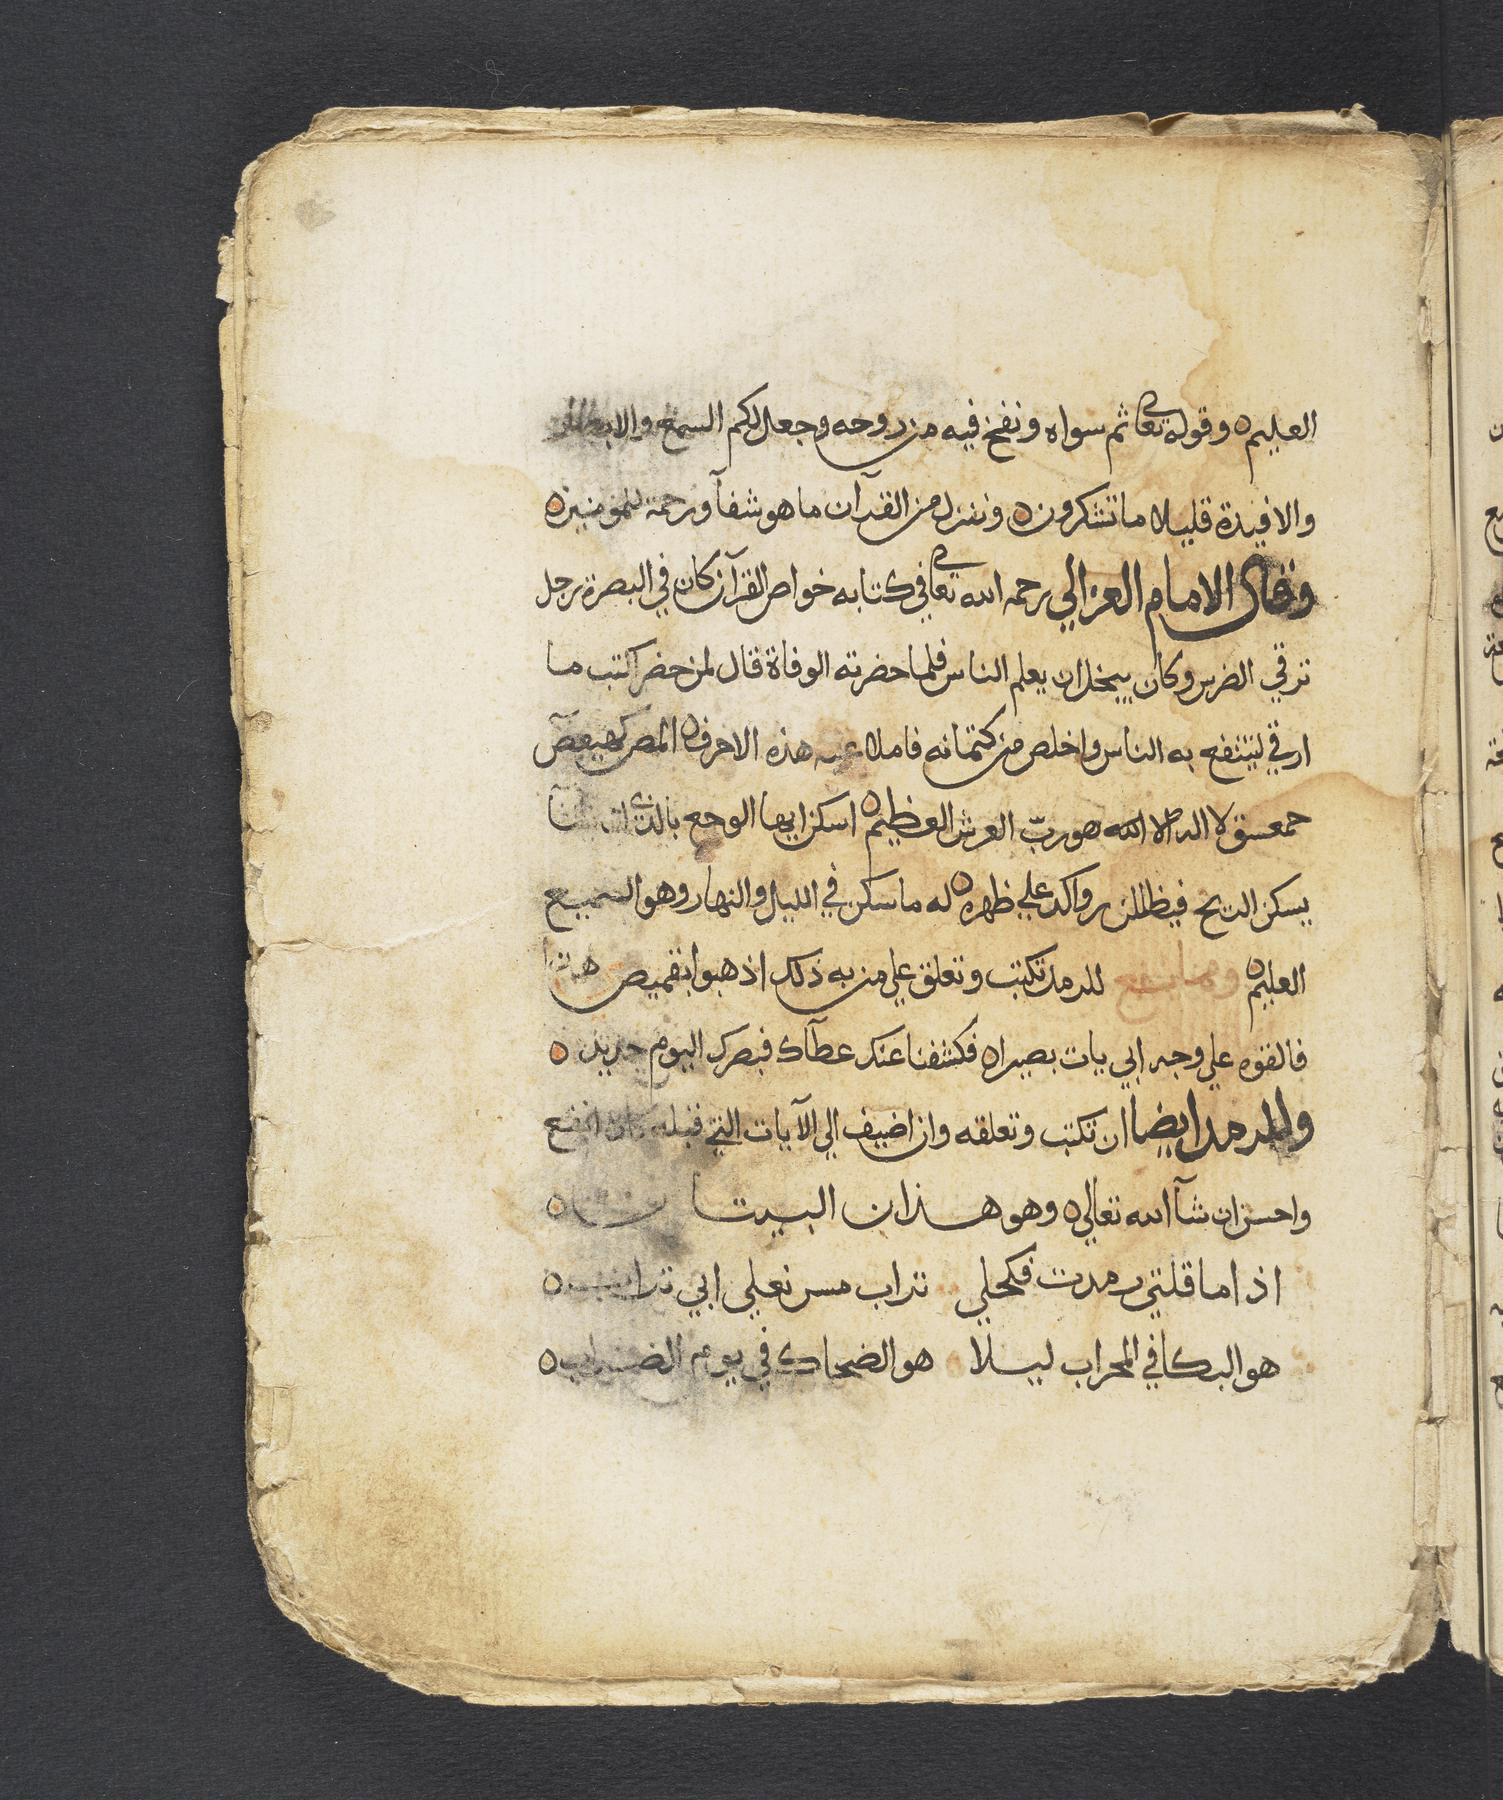 العليم ه وقوله تعالى ثم سواه ونفخ فيه من روحه وجعل لكم السمع والابصار
والافيدة قليلا ما تشكرون ه وننزل من القرآن ما هو شفآ ورحمة للمومنين ه
وقال الامام الغزالي رحمه الله تعالى في كتابه خواص القرآن كان في البصرة رجل
ترقي الضرس وكان يبخل ان يعلم الناس فلما حضرته الوفاة قال لمن حضر اكتب ما
ارقي لينتفع به الناس واخلص من كتمانه فاملا عليه هذه الاحرف ه المص كهيعص
حمعسق لا اله الا الله هو رب العرش العظيم ه اسكن ايها الوجع بالذي ان يشا
يسكن الريح فيظللن رواكد علي ظهره ه له ما سكن في الليل والنهار وهو السميع
العليم ه ومما ينفع للرمد تكتب وتعلق علي من به ذلك اذهبوا بقميصي هذا
فالقوه علي وجه ابي يات بصيرا ه فكشفنا عنك غطآك فبصرك اليوم حديد ه
وللرمد ايضا ان تكتب وتعلقه وان اضيف الي الآيات التي قبله كان انفع
واحسن ان شآ الله تعالي ه وهو هذان البيتان ه
اذا ما قلتي رمدت فكحلي تراب مس نعلي ابي تراب ه
هو البكا في المحراب ليلا هو الضحاك في يوم الضراب ه